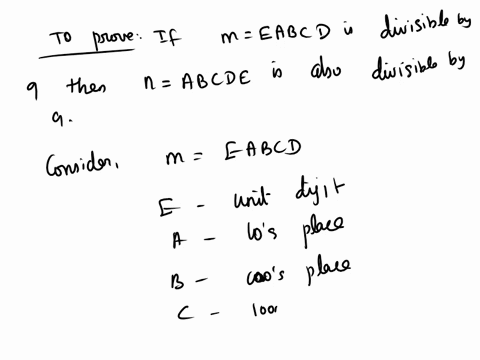 To prove: If m = EABCD is divisible by
9 then n = ABCDE is also divisible by
9.
Consider, m = EABCD
E - unit digit
A - 10's place
B - 100's place
C - 100